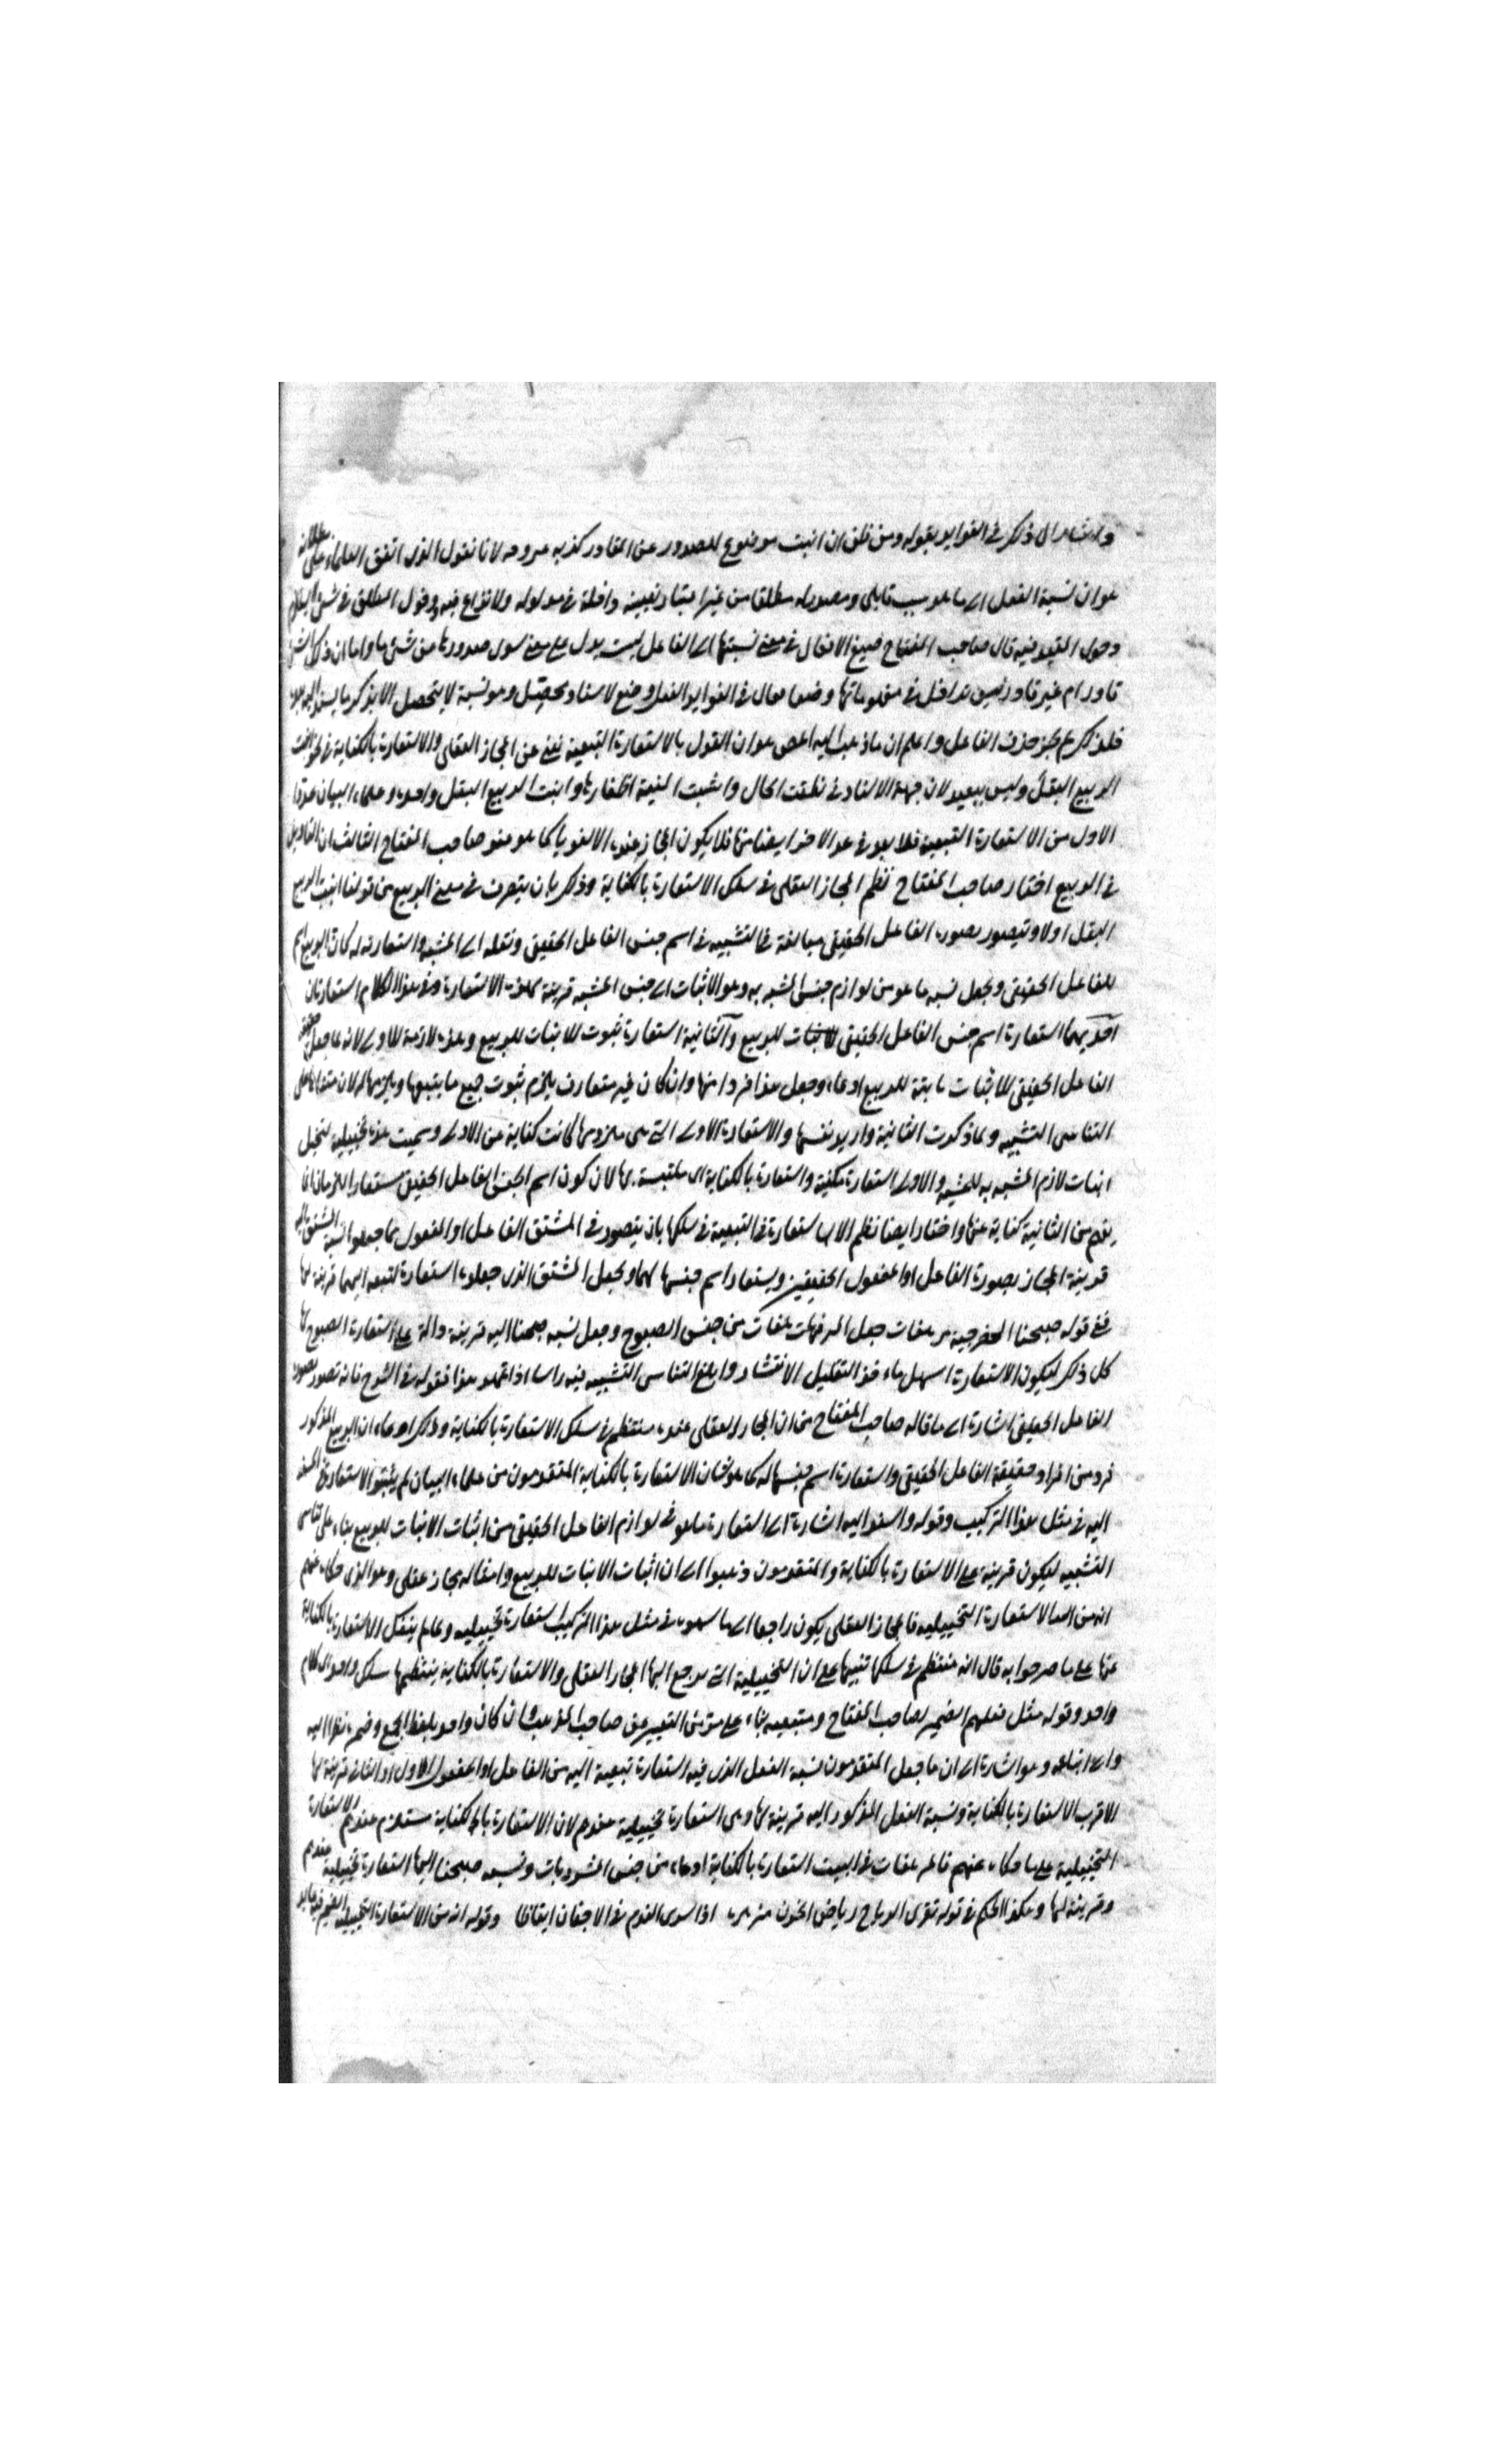 واشار الى ذلك في الفوايد بقوله ومن ظن ان انبت موضوع للصدور عن القادر كذبه لانا نقول الذى اتفق العلماء على
هو ان نسبة الفعل الى ما هو سبب قابلى ومصدر له مطلقا من غير اعتبار تعيينه داخلة في مدلوله ولا نزاع فيه دخول المطلق في شئ
دخول القيد فيه قال صاحب المفتاح صيغ الافعال في معنى نسبتها الى الفاعل ليست يدل على معنى سوى صدورها من شئ ما واما ان ذلك الشئ
قادر ام غير قادر فليس بداخل في مفهوماتها وضعا وقال في الفوايد الفعل وضع لاسناد وهو نسبة لا يتحصل الا بذكر ما يسند اليه
فلذلك لم يجز حذف الفاعل واعلم ان ما ذهب اليه المص هو ان القول بالاستعارة التبعية يغنى عن المجاز العقلى والاستعارة بالكناية في نحو انبت
الربيع البقل وليس ببعيد لان جهة الاسناد في نطقت الحال وانشبت المنية اظفارها وانبت الربيع البقل واحدة وعلماء البيان عدوا
الاول من الاستعارة التبعية فلا بعد في عد الاخر ايضا منها فلا يكون المجاز عنده الا لغويا كما هو عند صاحب المفتاح الثالث ان
في الربيع اختار صاحب المفتاح نظم المجاز العقلى في سلك الاستعارة بالكناية وذلك بان يتصرف في معنى الربيع من قولنا انبت الربيع
البقل اولا وتصور بصورة الفاعل الحقيقى مبالغة في التشبيه في اسم جنس الفاعل الحقيقى ونقله الى المشبه واستعارته له كان الربيع اسم
للفاعل الحقيقى ويجعل نسبة ما هو من لوازم جنس المشبه به وهو الانبات الى جنس المشبه قرينة لهذه الاستعارة وفي هذا الكلام استعارتان
احديهما استعارة اسم جنس الفاعل الحقيقى للانبات للربيع والثانية استعارة ثبوت الانبات للربيع وهذه لازمة للاولى لانه لما جعل
الفاعل الحقيقى للانبات ثابتة للربيع ادعاء وجعل هذا فردا منها وان كان غير متعارف يلزم ثبوت جميع ما يتبعها ويلزمها له لان
التناسى التشبيه ولما ذكرت الثانية واريد نفسها والاستعارة الاولى التى هى ملزومها كانت كناية عن الاولى وسميت هذه تخييلية لتخيل
اثبات لازم المشبه به للمشبه والاولى استعارة مكنية واستعارة بالكناية اى ملتبسة بها لان كون اسم الجنس الفاعل الحقيقى مستعارا للزمان انما
يفهم من الثانية كناية عنها واختار ايضا نظم الاستعارة في التبعية في سلكها بان يتصور في المشتق الفاعل او المفعول بما جعلوا نسبة المشتق اليه
قرينة المجاز بصورة الفاعل او المفعول الحقيقين ويستعار اسم جنسها لهما ويجعل المشتق الذى جعلوه استعارة لتبعية اليهما قرينة لها
ففي قوله صبحنا الخزرجية مرهفات جعل المرهفات من جنس الصبوح وجعل نسبة صبحنا اليه قرينة دالة على استعارة الصبوح لها
كل ذلك ليكون الاستعارة اسهل ماءخذ التقليل الانتشار وابلغ لتناسى التشبيه فيه راسا اذا تمهد هذا فقوله في الشرح فانه تصور بصورة
الفاعل الحقيقى اشارة الى ما قاله صاحب المفتاح من ان المجاز العقلى عنده منتظم في سلك الاستعارة بالكناية وذلك ادعاء ان الربيع المذكور
فرد من افراد حقيقة الفاعل الحقيقى واستعارة اسم جنسها له كما هو شان الاستعارة بالكناية المتقدمون من علماء البيان لم يثبتوا الاستعارة في المسند
اليه في مثل هذا التركيب وقوله واسند اليه اشارة الى استعارة ما هو في لوازم الفاعل الحقيقى من اثبات الانبات للربيع بناء على تناسى
التشبيه ليكون قرينة على الاستعارة بالكناية والمتقدمون ذهبوا الى ان اثبات الانبات للربيع وامثاله مجاز عقلى وهو الذى حكاه عنهم
انه من الاستعارة التخييلية فالمجاز العقلى يكون راجعا الى ما سموه في مثل هذا التركيب استعارة تخييلية ولما لم ينفك الاستعارة بالكناية
عنها على ما صرحوا به قال انه منتظم في سلكها تنبيها على ان التخييلية التى يرجع اليها المجاز العقلى والاستعارة بالكناية ينتظمهما سلك واحد اى كلام
واحد وقوله مثل فعلهم الضمير لصاحب المفتاح ومتبعيه بناء على التعبير عن صاحب المذهب وان كان واحد بلفظ الجمع وضميره نظرا اليه
والى اتباعه وهو اشارة الى ان ما جعل المتقدمون نسبة الفعل الذى فيه استعارة تبعية اليه من الفاعل او المفعول الاول او الثانى قرينة لها
الاقرب الاستعارة بالكناية ونسبة الفعل المذكور اليه قرينة لها وهى استعارة تخييلية عندهم لان الاستعارة بالكناية مستلزم عندهم الاستعارة
التخييلية على ما حكاه عنهم فالمرهفات في البيت استعارة بالكناية ادعاء من جنس المشروبات ونسبة صبحنا اليها استعارة تخييلية عندهم
وقرينة لها وهكذا الحكم في قوله تقرى الرياح رياض الحزن مزهرة اذا سرى النوم في الاجفان ايقاظا وقوله انه من الاستعارة التخييلية